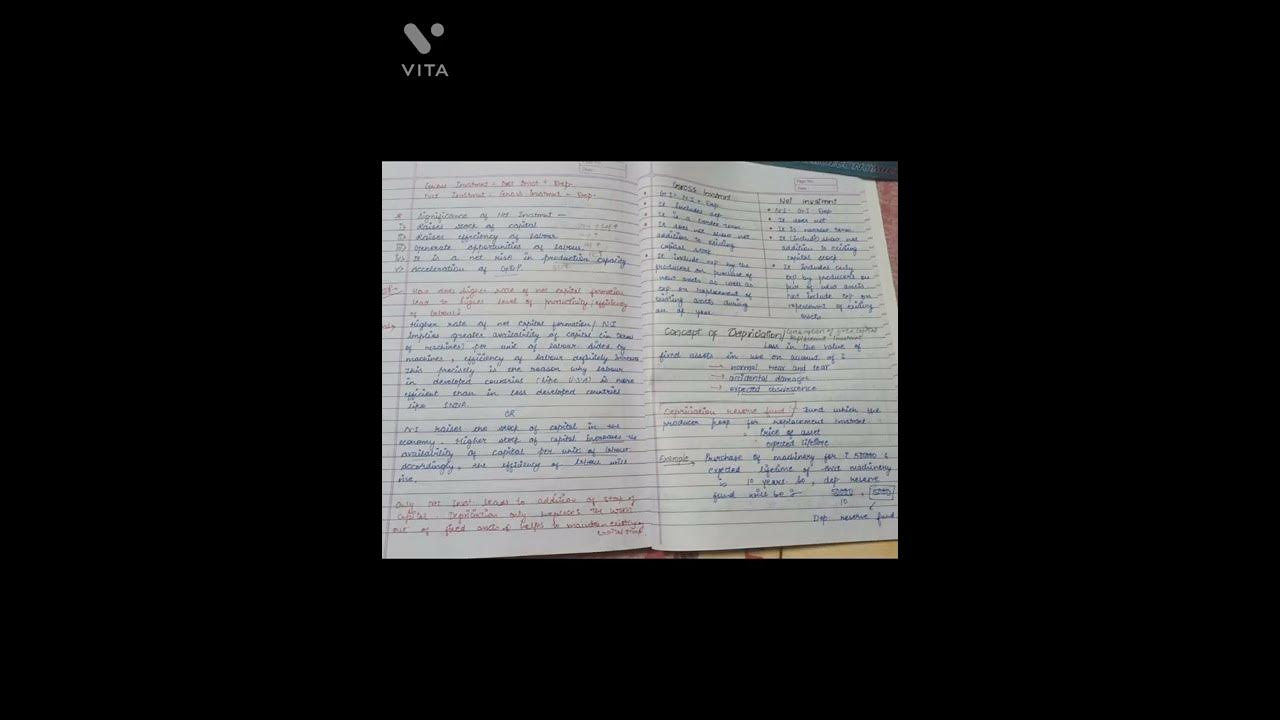 VITA
Gross Invstmnt = Net Invst + Dep.
Net Invstmnt = Gross Invstmnt - Dep.
Significance of Net Invstmnt —
I) Raises stock of capital
II) Raises efficiency of labour
III) Generate opportunities of labour
IV) It is a net risk in production capacity
V) Acceleration of GDP.
How does higher rate of net capital formation
lead to higher level of productivity/efficiency
of labour?
Higher rate of net capital formation/N.I
implies greater availability of capital (in terms
of machines) per unit of labour. Aided by
machines, efficiency of labour definitely
This precisely is the reason why labour
in developed countries (like USA) is more
efficient than in less developed countries
like INDIA.
OR
N.I raises the stock of capital in the
economy. Higher stock of capital increases the
availability of capital per unit of labour.
Accordingly, the efficiency of labour will
rise.
Only net invst leads to addition of
capital. Depriciation only replaces the worn
out of fixed assets & helps to maintain existing
capital
Gross Invstmnt
• G.I = N.I + Dep
• It includes dep
• It is a border term
• It does not show net
addition to existing
capital stock
• It include exp by the
producers on purchase of
new assets as well as
exp on replacement of
existing assets during
an a/c year.
Page No.
Date
Net invstmnt
• N.I = G.I - Dep
• It does not
• It is narrow term
• It (include) show net
addition to existing
capital stock
• It includes only
exp by producers on
pur of new assets
Not include exp on
replacement of existing
assets
Concept of Depriciation / consumption of fixed capital
Replacement invstmnt
Loss in the value of
fixed assets in use on account of :
→ normal wear and tear
→ accidental damages
→ expected obsolescence
Depriciation reserve fund / fund which the
producer keep for replacement invstmnt
Price of asset
expected lifetime
Example → Purchase of machinery for ₹ &
expected lifetime of that machinery
is 10 years. So, dep reserve
fund will be :-
10
Dep reserve fund